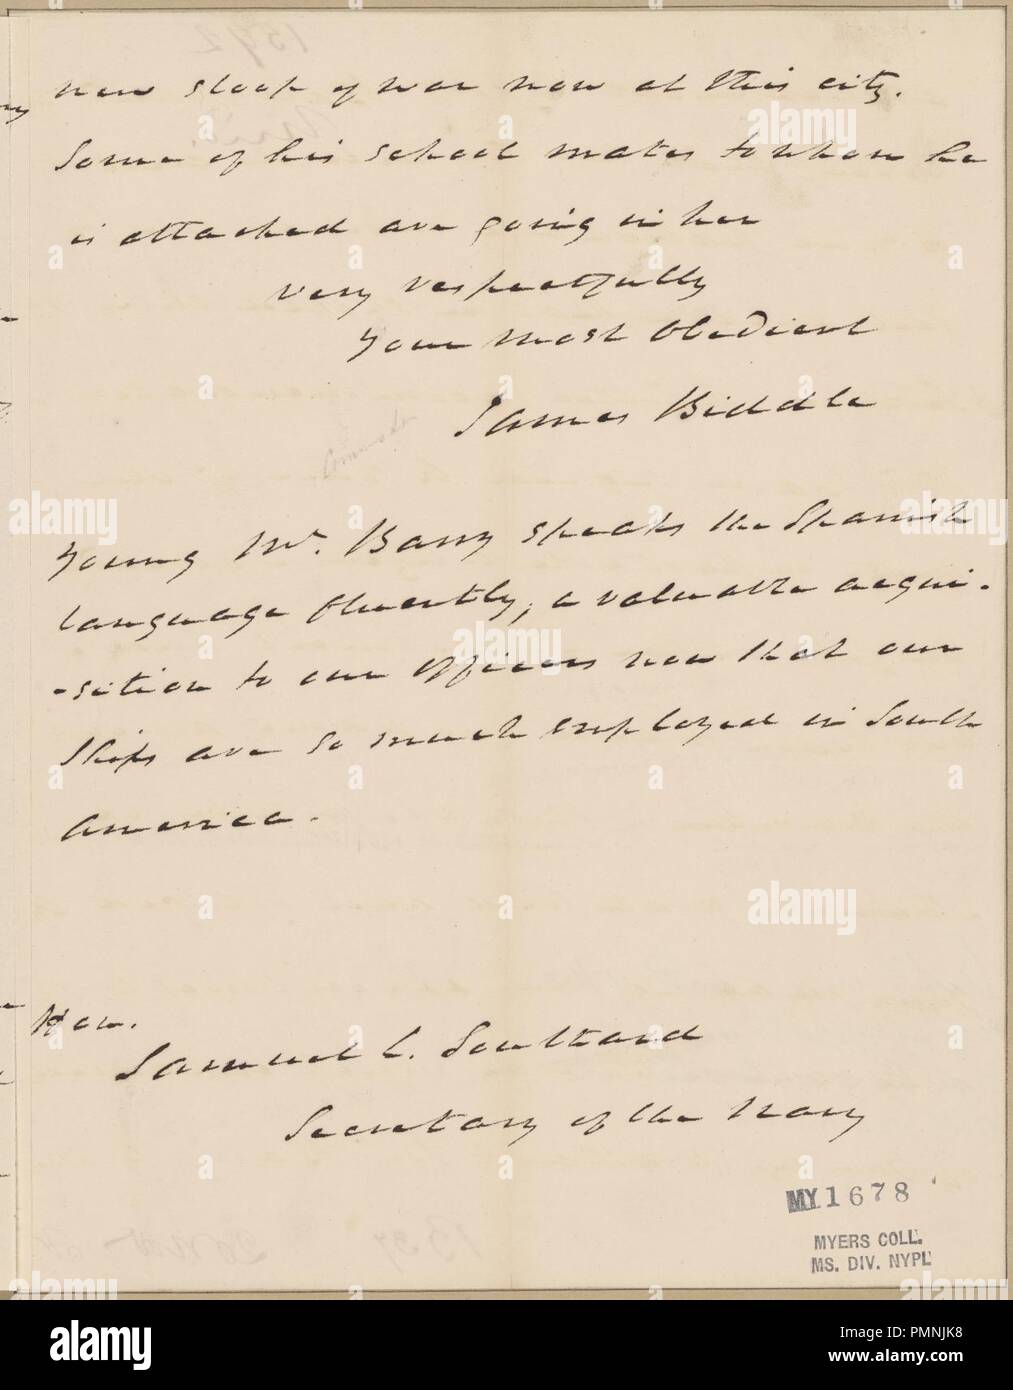 new sloop of war now at this city.
Some of his school mates to whom he
is attached are going in her
very respectfully
your most obedient
James Biddle
Commodore
Young Mr. Barry speaks the Spanish
language fluently, a valuable acqui-
-sition to our officers now that our
ships are so much employed in South
America.
Hon.
Samuel L. Southard
Secretary of the Navy
MY 1678
MYERS COLL.
MS. DIV. NYPL
alamy
Image ID: PMNJK8
www.alamy.com